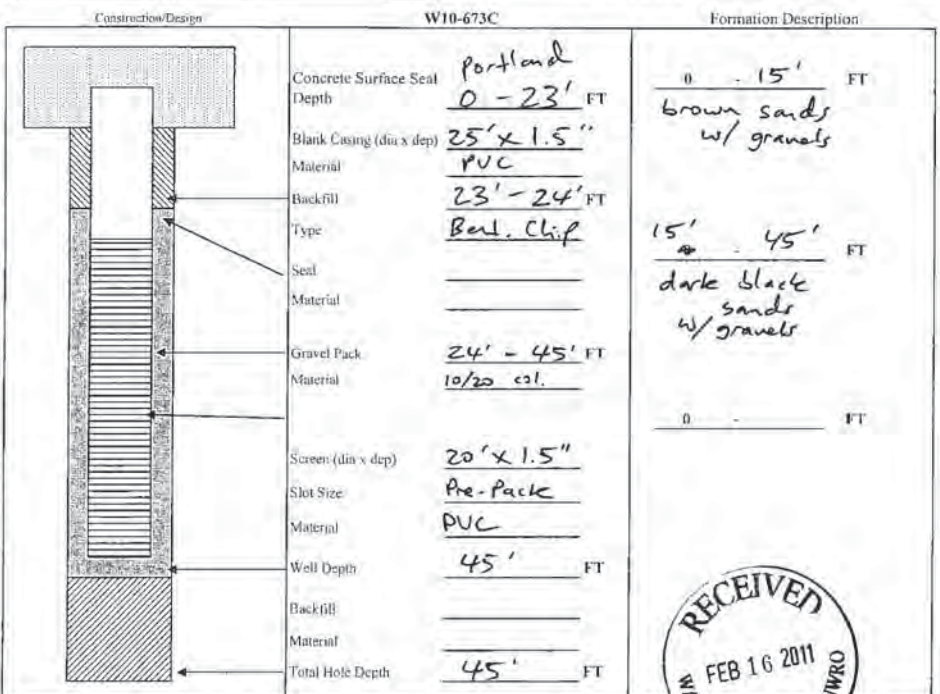 Construction/Design
W10-673C
Formation Description
Concrete Surface Seal Portland
Depth 0 - 23' FT
Blank Casing (dia x dep) 25' x 1.5"
Material PVC
Backfill 23' - 24' FT
Type Bent. Chip
Seal
Material
Gravel Pack 24' - 45' FT
Material 10/20 col.
Screen (dia x dep) 20' x 1.5"
Slot Size Pre-Pack
Material PVC
Well Depth 45' FT
Backfill
Material
Total Hole Depth 45' FT
0 - 15' FT
brown sands
w/ gravels
15' - 45' FT
dark black
sands
w/ gravels
0 - FT
RECEIVED
FEB 16 2011